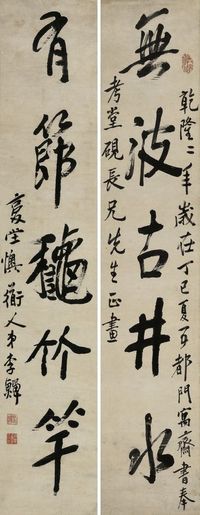 無波古井水
乾隆二年歲在丁巳夏五都門寓齋書奉
考堂硯長兄先生正畫
有節龝竹竿
复堂懊衜人弟李鱓